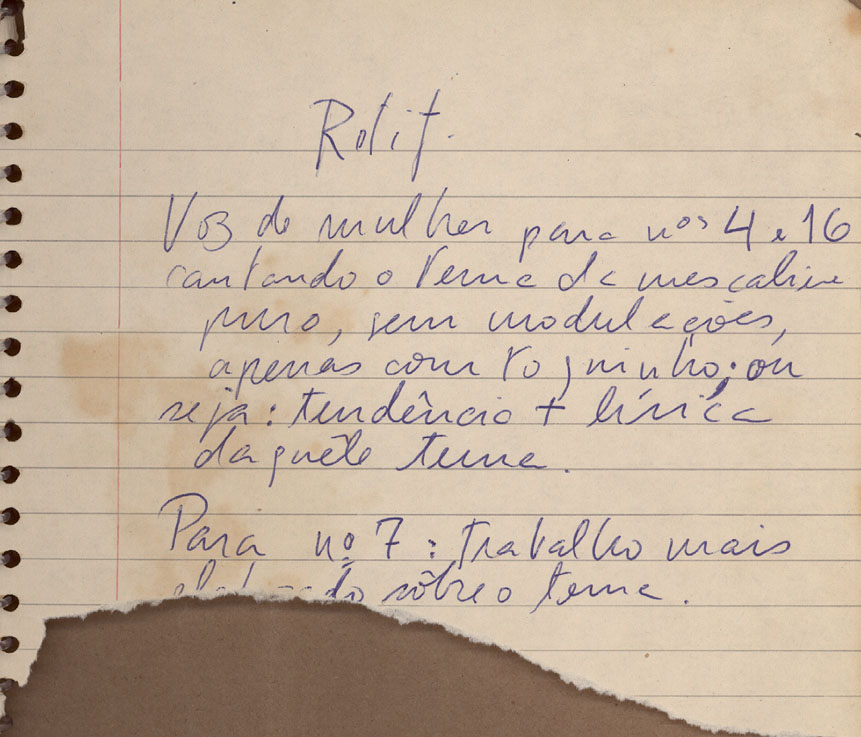 Rotit.
Voz de mulher para nos 4 e 16
cantando o tema da mescalina
puro, sem modulações,
apenas com Toquinho; ou
seja: tendência + lírica
daquêle tema.
Para nº 7: trabalho mais
sôbre o tema.